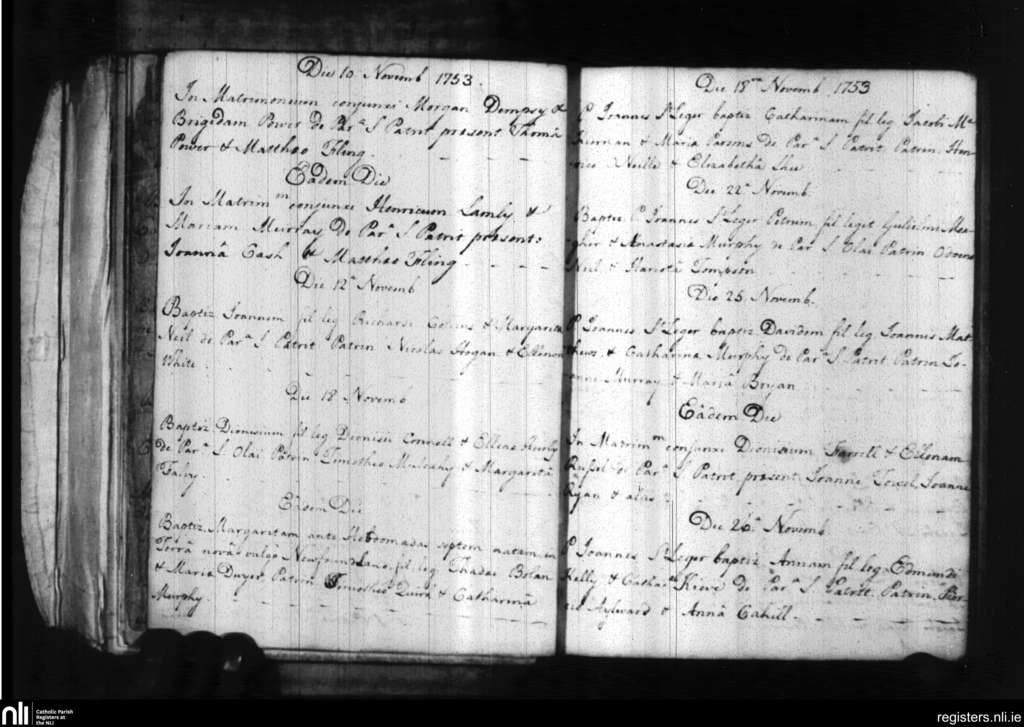 Die 10 Novemb 1753.
In Matrimonium conjunxi Morgan Dempsy &
Brigidam Power de Parᵃ S Patrit present Thoma
Power & Matthæo Fling
Eâdem Die
In Matrimᵐ conjunxi Henricum Lamly &
Mariam Murray De Parᵃ S Patrit present:
Joannâ Cash & Matthæo Fling
Die 12ᵃ Novemb
Baptiz Joannem fil leg Richardi & Margarita
Neil de Parᵃ S Patrit Patrin Nicolas Hogan & Ellenora
White
Die 18 Novemb
Baptiz Dionisium fil leg Dionisii Connell & Ellenæ Hurly
de Parᵃ S. Olai Patrin Timotheo Mulcany & Margaritâ
Fahy
Eâdem Die
Baptiz. Margaritam ante Hebdomadas septem natam in
Terrâ novâ vulgo fil leg Thadæi Bolan
& Maria Dwyer Patrin Timotheo Quirk & Catharinâ
Murphy
Die 18ᵐ Novemb 1753
P Joannes Sᵗ Leger baptiz Catharinam fil leg Jacobi Mᶜ
Kiernan & Maria Parsons de Parᵃ S Patrit. Patrin. Hen-
rico Neille & Elizabethâ Shee
Die 22ᵃ Novemb
Baptiz Pʳ Joannes Sᵗ Leger Petrum fil legit Gulielmi Mea-
gher & Anastasia Murphy de Parᵃ S Olai Patrin
Neil & Hariotâ Tompson
Die 25 Novemb.
P Joannes Sᵗ Leger baptiz Davidem fil leg Joannis Mat
thews & Catharina Murphy de Parᵃ S Patrit Patrin Jo-
anne Murray & Mariâ Bryan
Eâdem Die
In Matrimᵐ conjunxi Dionisium Farrell & Ellenam
Russel de Parᵃ S Patrit present Joanne Towel, Joanne
Ryan & aliis
Die 26ᵃ Novemb
P Joannes Sᵗ Leger baptiz Annam fil leg Edmundi
Kelly & Cathaᵃ de Parᵃ S Patrit. Patrin. Pier-
cio Aylward & Annâ Cahill.
nli
Catholic Parish
Registers at
the NLI
registers.nli.ie